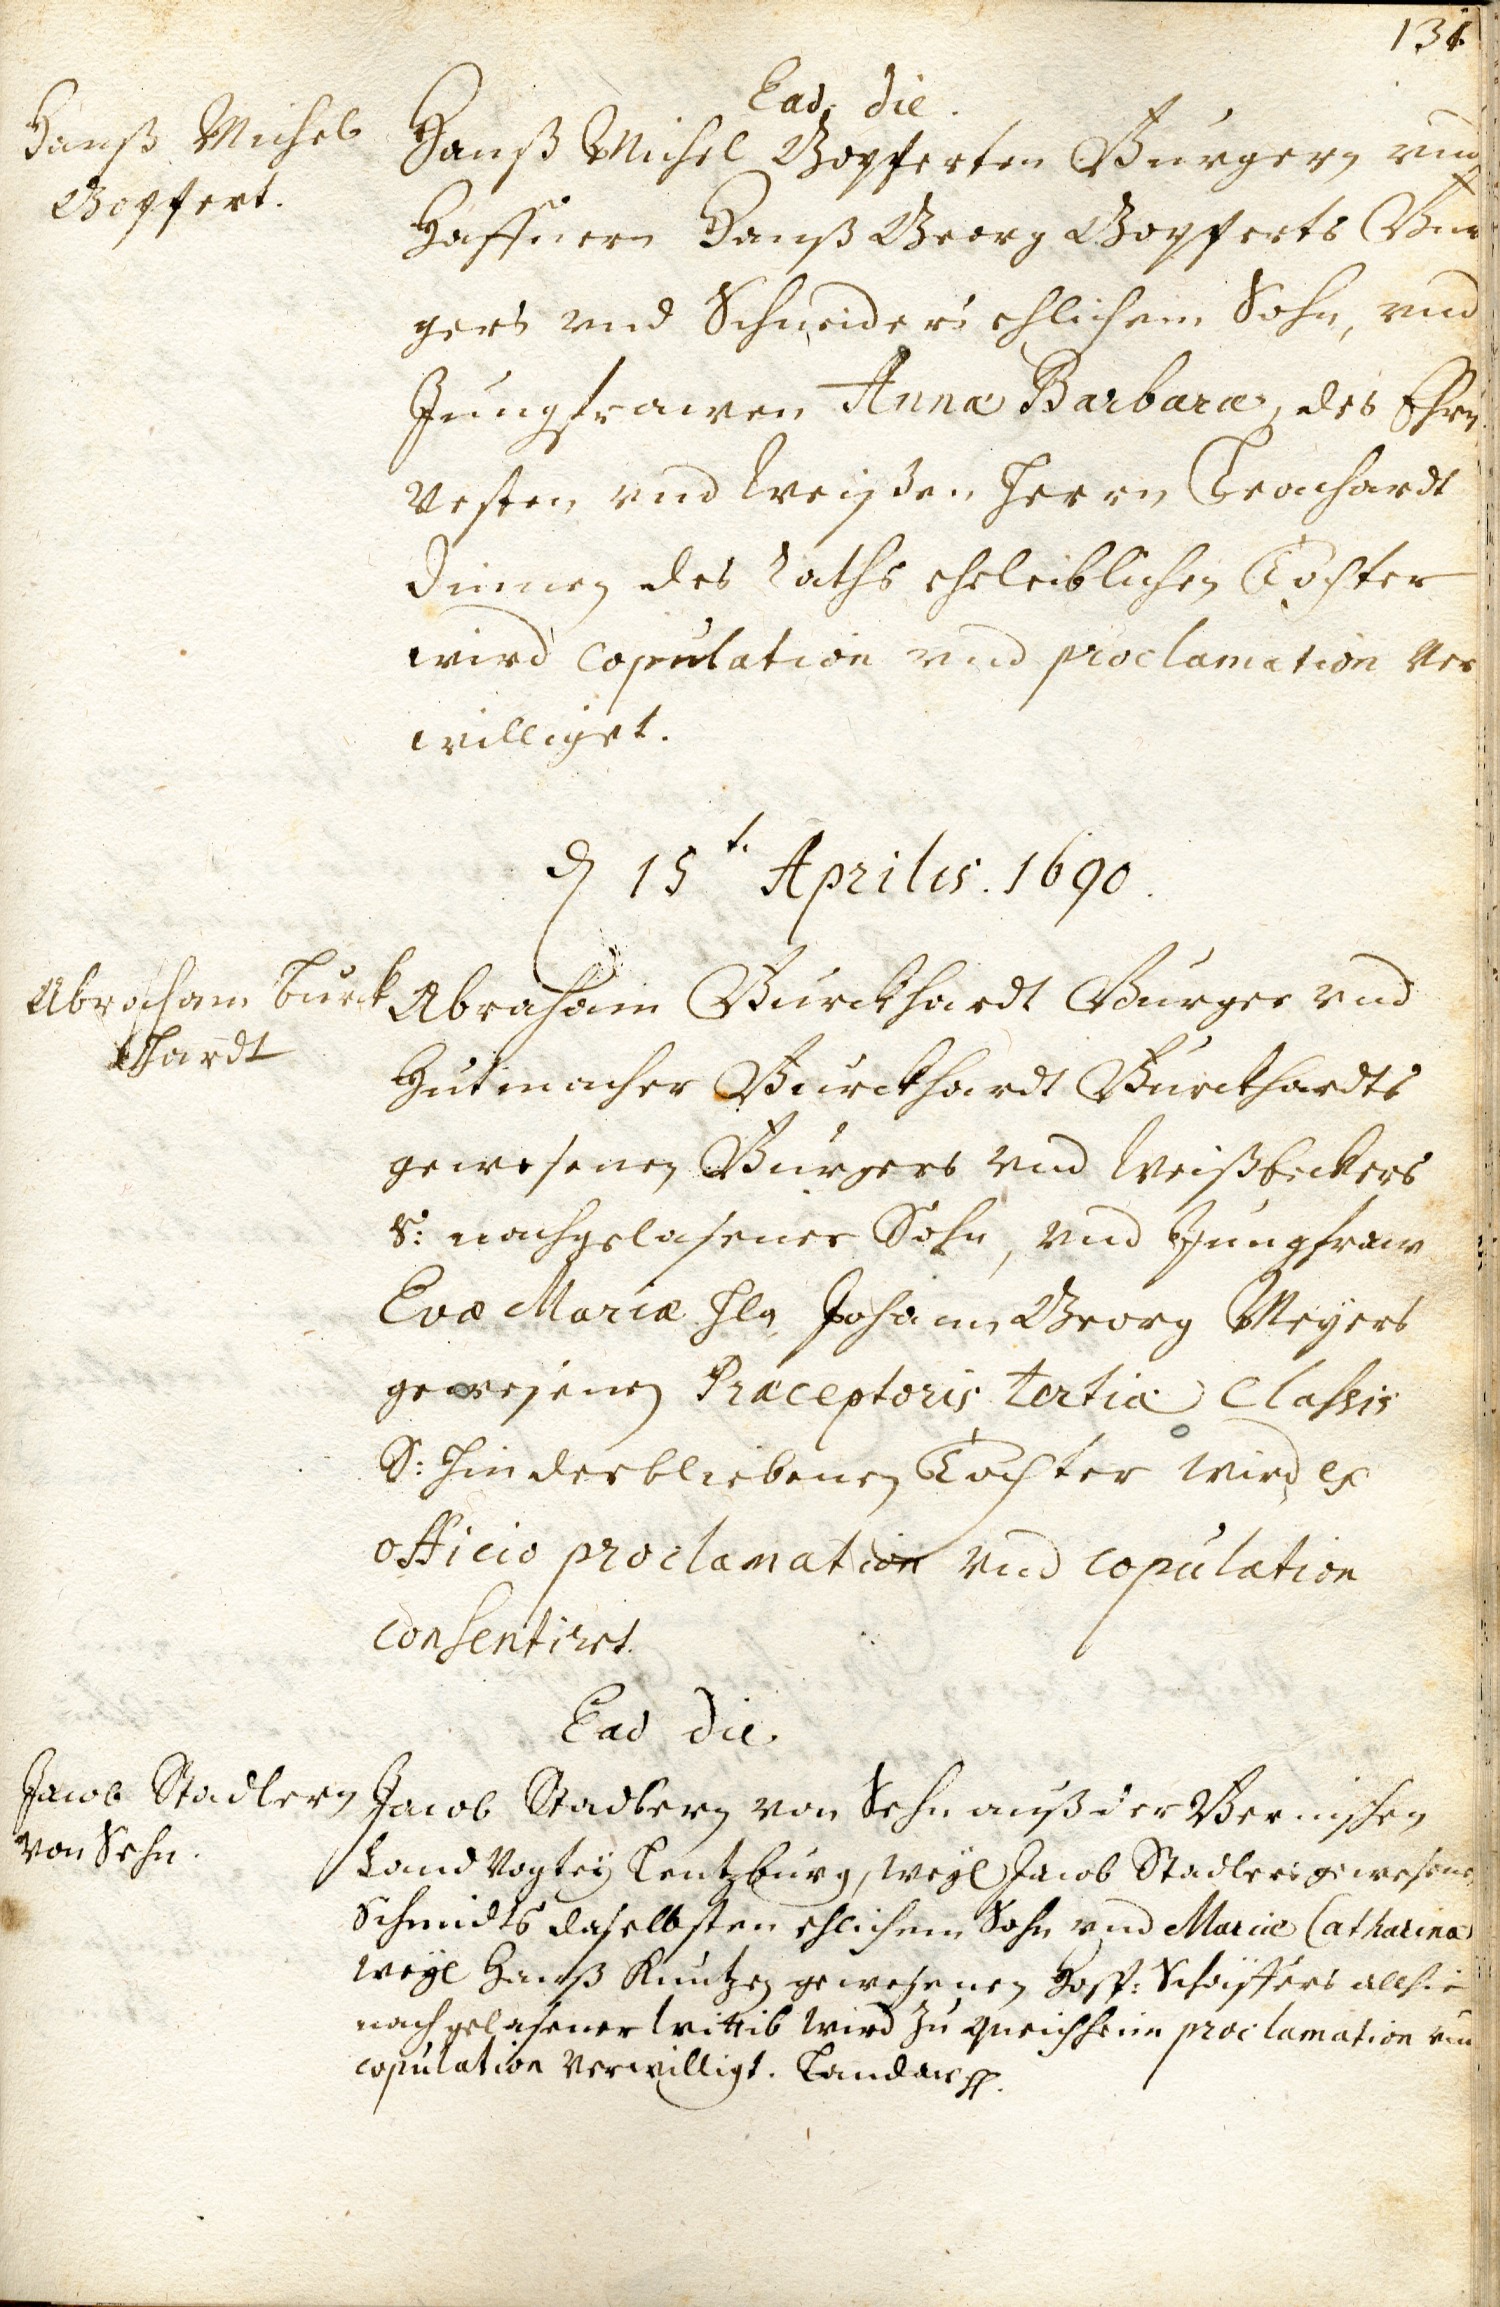 131.
Ead. die.
Hanß Michel
Gopfert.
Hanß Michel Gopferten Burgern vnd
Haffnern Hanß Georg Gopferts Bur
gers vnd Schneiders ehlichem Sohn, vnd
Jungfrawen Annæ Barbaræ, des Ehrn
Vesten vnd Weißen Herrn Leonhardt
des Raths eheleiblichen Tochter
wird copulation vnd proclamation ver
williget.
15t. Aprilis. 1690.
Abraham Burck
hardt
Abraham Burckhardt Burger vnd
Hutmacher Burckhardt Burckhardts
gewesenen Burgers vnd Weißbeckers
S: nachgelasener Sohn, vnd Jungfraw
Evæ Mariæ Hln Johann Georg Meyers
gewesenen Præceptoris tertiæ Classis
S: hinderbliebenen Tochter wird ex
officio proclamation vnd copulation
consentirt.
Ead die.
Jacob Stadlern
von Sehn.
Jacob Stadlern von Sehn auß der Bernischen
Land Vogtey Lentzburg, weyl Jacob Stadlers gewesenen
Schmidts daselbsten ehlichem Sohn vnd Mariæ Catharinæ
weyl Hanß Kuntzen gewesenen Hoff: Schäffers allhie
nachgelasener Wittib wird zu Queichheim proclamation vnd
copulation verwilligt. Landaw